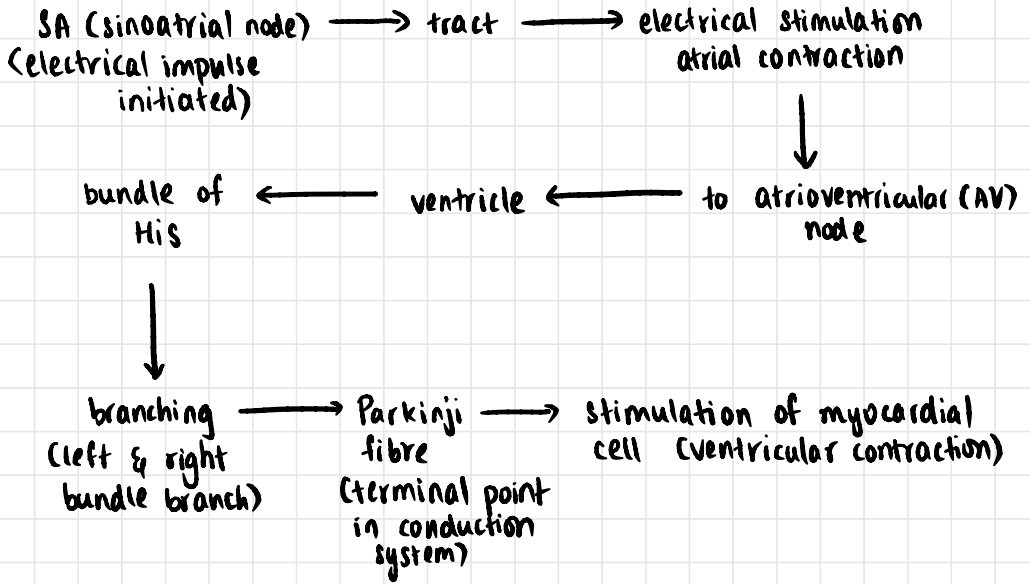 SA (sinoatrial node) → tract → electrical stimulation
(electrical impulse
initiated)
atrial contraction
to atrioventricular (AV)
node
ventricle
bundle of
His
branching
(left & right
bundle branch)
Parkinji
fibre
(terminal point
in conduction
system)
stimulation of myocardial
cell (ventricular contraction)